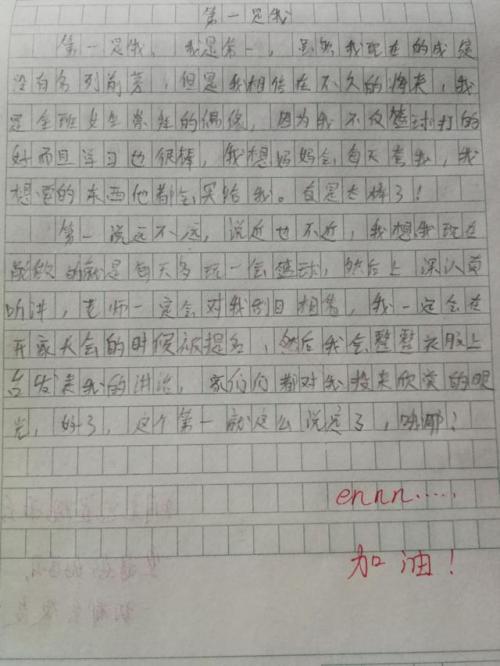 第一是我
第一是我，我是第一，虽然我现在的成绩
没有名列前茅，但是我相信在不久的将来，我
是全班女生崇拜的偶像，因为我不仅篮球打的
好而且学习也很棒，我想妈妈会每天夸我，我
想要的东西他都会买给我。真是太棒了！
第一说远不远，说近也不近，我想我现在
能做的就是每天多玩一会篮球，然后上课认真
听讲，老师一定会对我刮目相看，我一定会在
开家长会的时候被提名，然后我会整整衣服上
台发表我的讲话，家长们都对我投来欣赏的眼
光，好了，这个第一就这么说定了，哟耶！
ennn.....
加油！